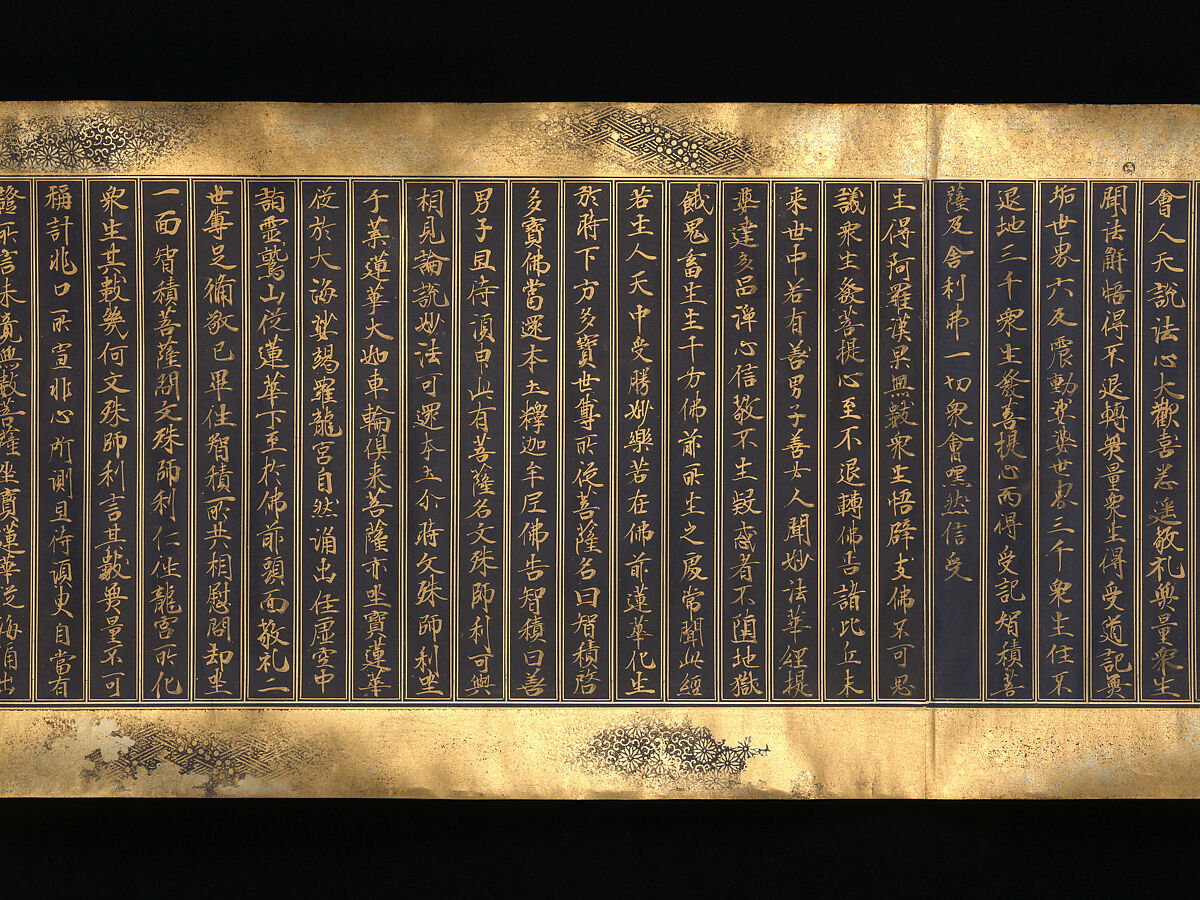 會人天說法心大歡喜悉遙敬礼無量衆生
聞法解悟得不退轉無量衆生得受道記無
垢世界六反震動娑婆世界三千衆生住不
退地三千衆生發菩提心而得受記智積菩
薩及舍利弗一切衆會嘿然信受
生得阿羅漢果無數衆生悟辟支佛不可思
議衆生發菩提心至不退轉佛告諸比丘未
来世中若有善男子善女人聞妙法華經提
婆達多品淨心信敬不生疑惑者不墮地獄
餓鬼畜生生十方佛前所生之處常聞此經
若生人天中受勝妙樂若在佛前蓮華化生
於時下方多寶世尊所從菩薩名曰智積啓
多寶佛當還本土釋迦牟尼佛告智積曰善
男子且待須臾此有菩薩名文殊師利可與
相見論說妙法可還本土尒時文殊師利坐
千葉蓮華大如車輪俱来菩薩亦坐寶蓮華
從於大海娑竭羅龍宮自然涌出住虛空中
詣靈鷲山從蓮華下至於佛前頭面敬礼二
世尊足脩敬已畢往智積所共相慰問却坐
一面智積菩薩問文殊師利仁往龍宮所化
衆生其數幾何文殊師利言其數無量不可
稱計非口所宣非心所測且待須臾自當有
證所言未竟無數菩薩坐寶蓮華從海涌出